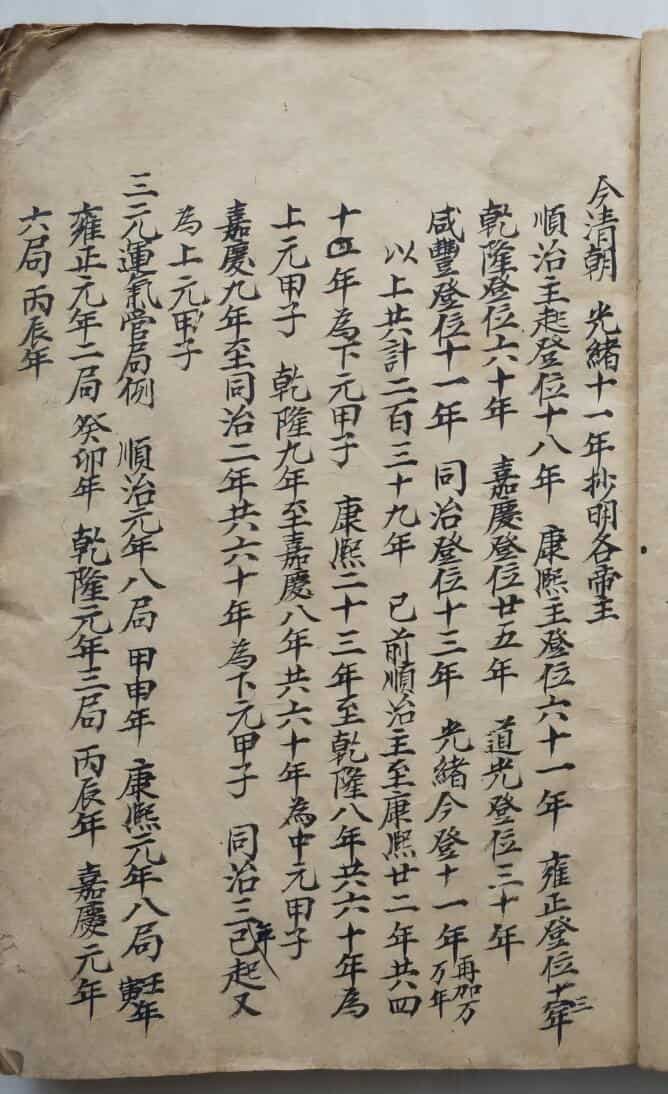 今清朝　光緒十一年抄明各帝主
順治主起登位十八年　康熙主登位六十一年　雍正登位十三年
乾隆登位六十年　嘉慶登位廿五年　道光登位三十年
咸豐登位十一年　同治登位十三年　光緒今登十一年再加万万年
以上共計二百三十九年　已前順治主至康熙廿二年共四
十四年為下元甲子　康熙二十三年至乾隆八年共六十年為
上元甲子　乾隆九年至嘉慶八年共六十年為中元甲子
嘉慶九年至同治二年共六十年為下元甲子　同治三年已起又
為上元甲子
三元運氣管局例　順治元年八局　甲申年　康熙元年八局　壬寅年
雍正元年二局　癸卯年　乾隆元年三局　丙辰年　嘉慶元年
六局　丙辰年